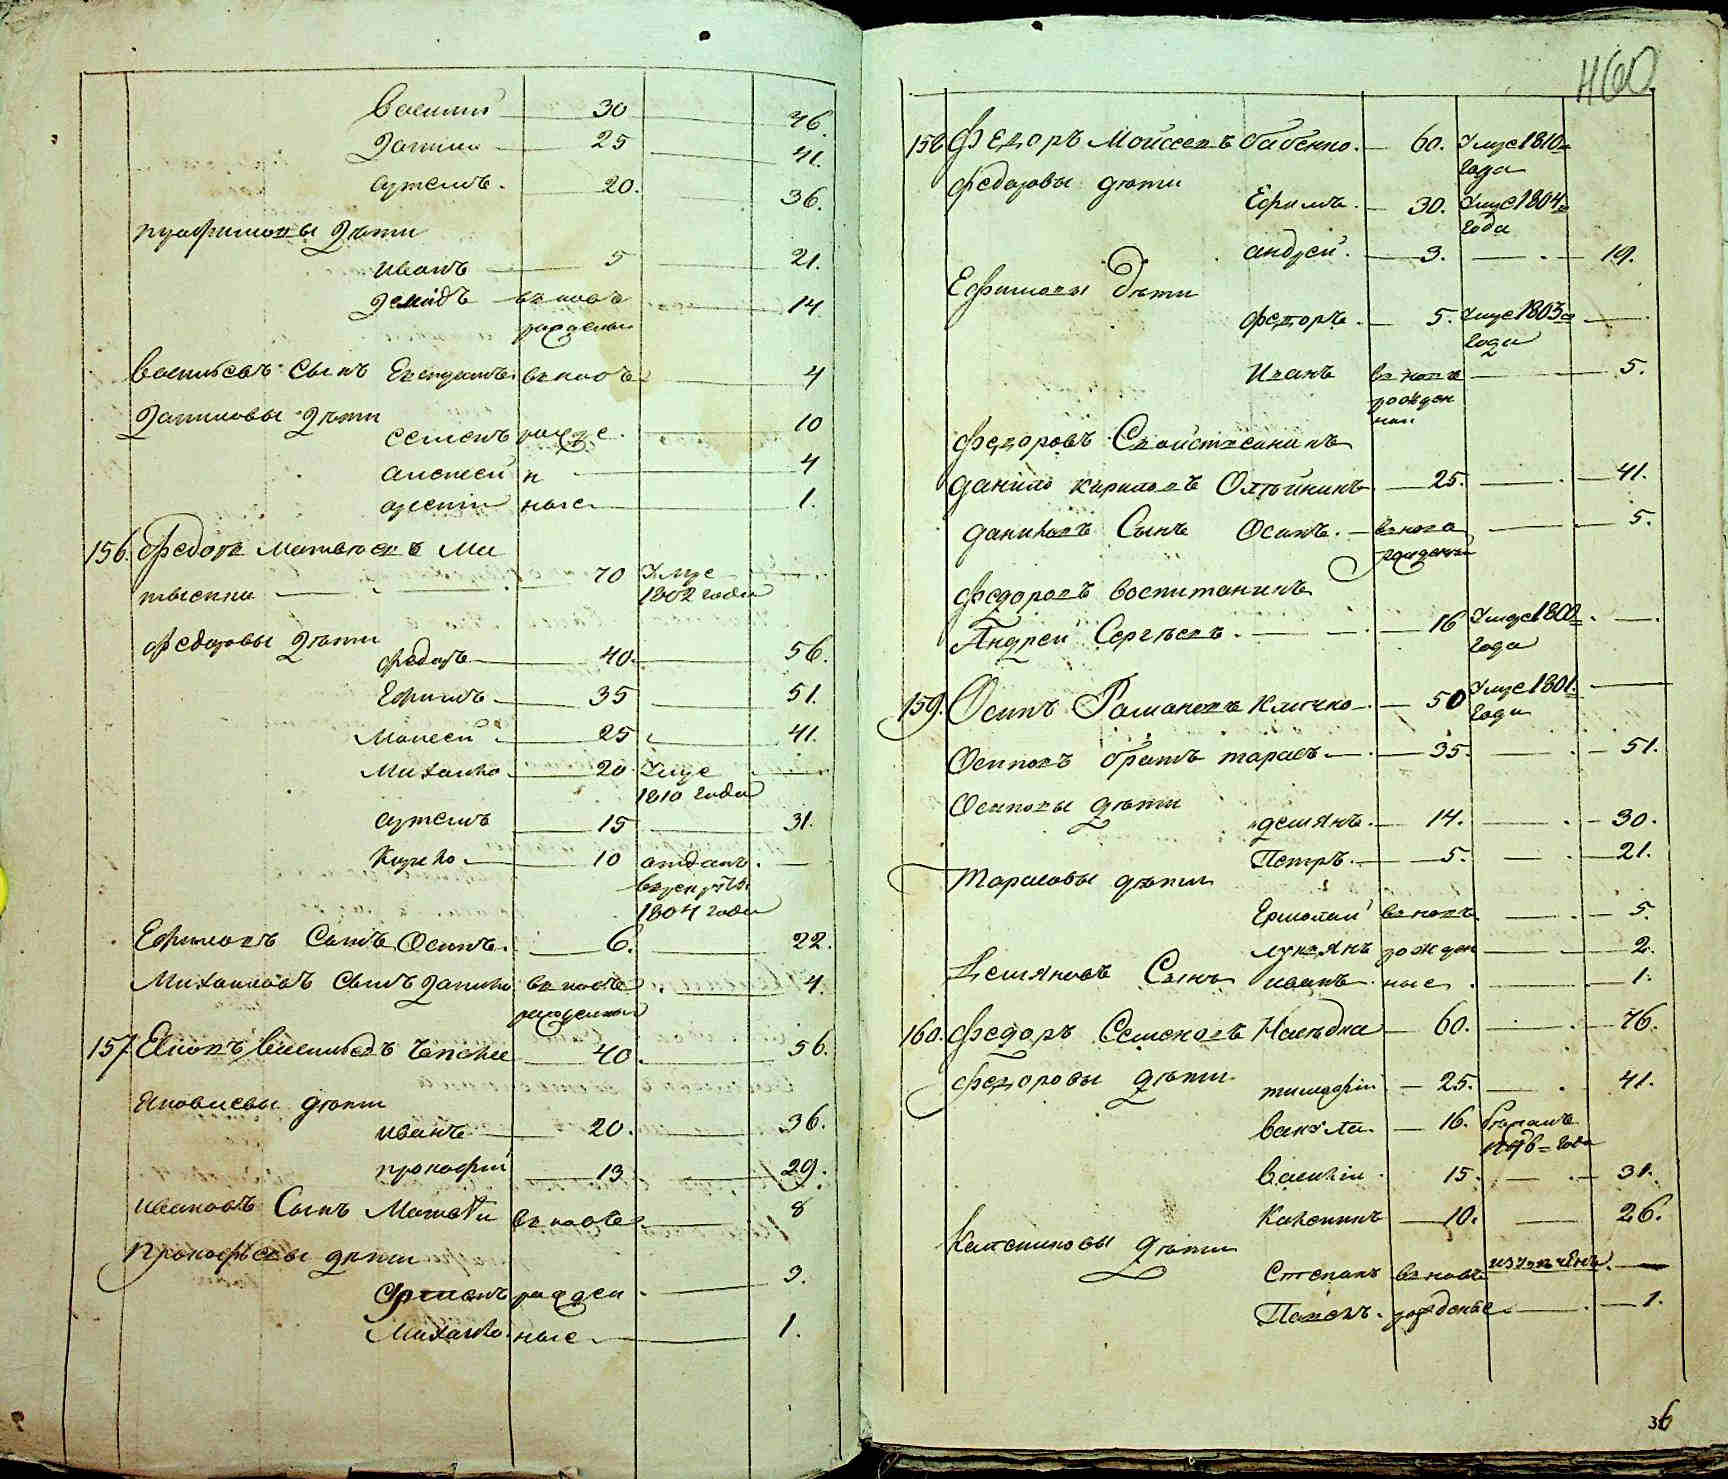 Василий 30 46.
Данило 25 41.
Артемъ. 20. 36.
Трофимовы Дѣти
Иванъ 5 21.
Демидъ вновь 14
рожденый
Васильевъ Сынъ Евстратъ вновь 4
Даниловы Дѣти
Семенъ рожде 10
Алексей н 4
ные 1.
156. Федоръ Матвѣевъ Ми
70 Умре
1802 года
Федоровы Дѣти
Федоръ 40. 56.
Ефимъ 35 51.
Моисей 25 41.
Михайло 20 Умре
1810 года
Артемъ 15 31.
Кирило 10 отданъ
в рекруты
1804 года
Ефимовъ Сынъ Осипъ. 6. 22.
Михайловъ Сынъ Данило вновь 4.
рожденной
157 Яковъ Васильевъ 40. 56.
Яковлевы дѣти
Иванъ 20. 36.
Прокофий 13 29.
Ивановъ Сынъ Матвѣй вновь 8
Прокофьевы дѣти
рожден 3.
Михайло ные 1.
460
158 Федоръ Моисеевъ Бабенко. 60. Умре 1810
года
Федоровы дѣти
Ефимъ. 30. Умре 1804
года
Андрей. 3. 19.
Ефимовы Дѣти
Федоръ. 5. Умре 1803
года
Иванъ вновь 5.
рожден
ныи
Федоровъ Свойственникъ
Данило Кириловъ Олѣйникъ 25. 41.
Даниловъ Сынъ Осипъ. вново 5.
рожденый
Федоровъ воспитаникъ
Андрей Сергѣевъ. 16 Умре 1800
года
159. Осипъ Романовъ Кличко 50 Умре 1801.
года
Осиповъ братъ Тарасъ 35. 51.
Осиповы дѣти
Демянъ. 14. 30.
Петръ. 5. 21.
Тарасовы дѣти
Ермолай вновь 5.
Лукьянъ рожден 2.
Демяновъ Сынъ Иванъ ные 1.
160. Федоръ Семеновъ Наѣдка 60. 76.
Федоровы дѣти
Тимофѣй 25. 41.
Вакула 16.
года
Василий 15. 31.
Каленикъ 10. 26.
Калениковы Дѣти
Степанъ вновь изключенъ.
рожденые 1.
36